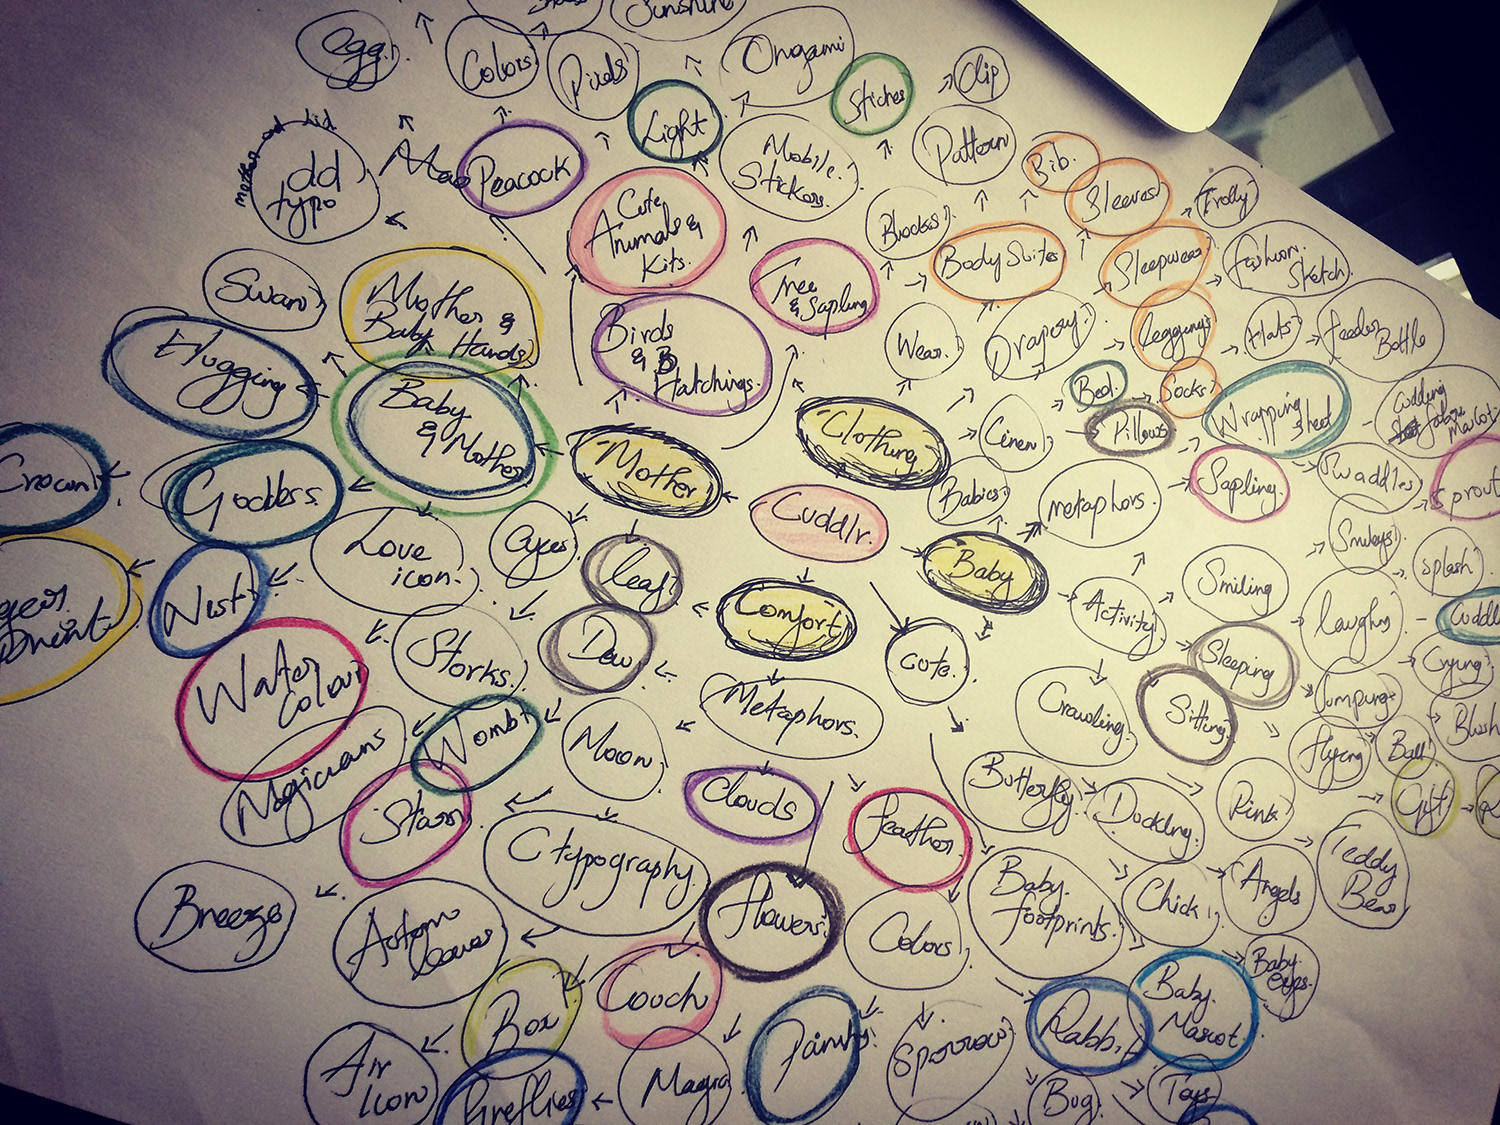 Sunshine
Egg
Colors
Pixels
Origami
Stiches
Clip
mother and kid
dd
typo
Mao
Peacock
Light
Mobile
Stickers
Pattern
Bib.
Sleeves
Trolly
Cute
Animals &
Kits.
Blocks
Body Suites
Sleepwear
Fashion
Sketch
Swan
Mother &
Baby Hands
Birds
& B
Hatchings.
Tree
& Sapling
Wear
Drapery
Leggings
Hats
feeder
Bottle
Hugging
Baby
& Mother
Mother
Clothing
Linen
Bed
Pillows
Socks
Wrapping
sheet
Cudding
Mascot
Crown
Goddess
Love
icon
Eyes
leaf
Cuddlr.
Babies
metaphors
Sapling
Swaddles
Sprout
Nest
Storks
Dew
Comfort
Baby
Activity
Smiling
Smileys
Splash
Water
Colour
Womb
Moon
Metaphors
cute
Crawling
Sitting
Sleeping
laughing
Cuddle
Crying
Jumping
Magicians
Stars
Clouds
feather
Butterfly
Duckling
Pink
flying
Ball
Blush
Gift
C typography
flowers
Colors
Baby
footprints
Chick
Angels
Teddy
Bear
Breeze
Autom
leaves
Box
Couch
Baby
Mascot
Baby
Eyes
Air
Icon
fireflies
Magic
Sparrow
Rabbit
Bug
Toys